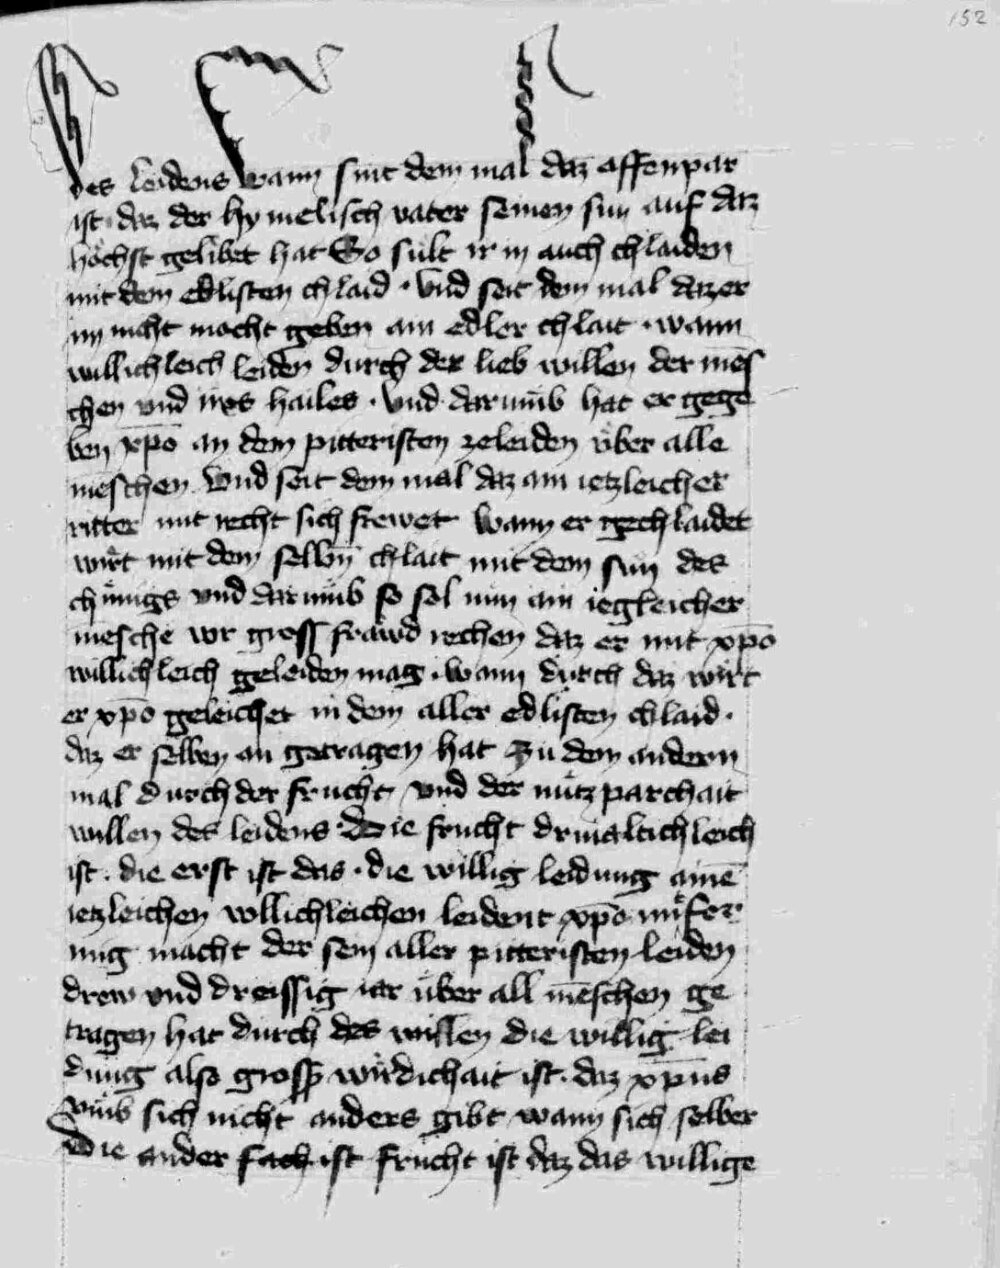 152
des leidens wann sint dem mal daz affenpar
ist · daz der hymelisch vater seinen sun auf daz
höchst gelibet hat So sült ir in auch chlaiden
mit dem edlisten chlaid · Und seit dem mal daz er
im nicht mocht geben ain edler chlait · wann
willichleich leiden durch der lieb willen der mēs
chen vnd irs hailes · Und darumb hat er gege
ben xp̄o an dem pitteristen zeleiden über alle
mēschen Und seit dem mal daz ain ietzleicher
ritter mit recht sich frewet wann er gechlaidet
wirt mit dem selbn̄ chlait mit dem sun des
chünigs vnd darumb so sol nim ain iegleicher
mēsche vor gross frawd rechen daz er mit xp̄o
willichleich geleiden mag · wann durch daz wirt
er xp̄o geleichet in dem aller edlisten chlaid ·
daz er selben an getragen hat Zu dem andern
mal durch der frucht vnd der nützparchait
willen des leidens · Die frucht drivaltichleich
ist · die erst ist das · die willig leidung ainē
ietzleichen willichleichen leident xp̄o
nug macht der sein aller pitteristen leiden
drew vnd dreissig iar über all mēschen ge
tragen hat durch des willen die willig lei
dung also gross wirdichait ist · daz xp̄us
vmb sich nicht anders gibt wann sich selber
Die ander frucht ist daz das willige